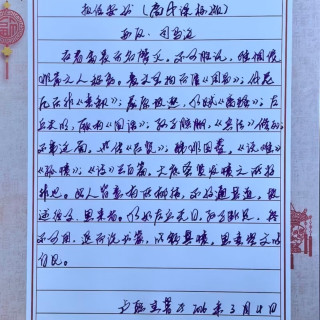 报任安书（高中课标版）
西汉·司马迁
古者富贵而名摩灭，不可胜记，唯倜傥
非常之人称焉。盖文王拘而演《周易》；仲尼
厄而作《春秋》；屈原放逐，乃赋《离骚》；左
丘失明，厥有《国语》；孙子膑脚，《兵法》修列；
不韦迁蜀，世传《吕览》；韩非囚秦，《说难》
《孤愤》；《诗》三百篇，大底圣贤发愤之所为
作也。此人皆意有所郁结，不得通其道，故
述往事、思来者。乃如左丘无目，孙子断足，终
不可用，退而论书策，以舒其愤，思垂空文以
自见。